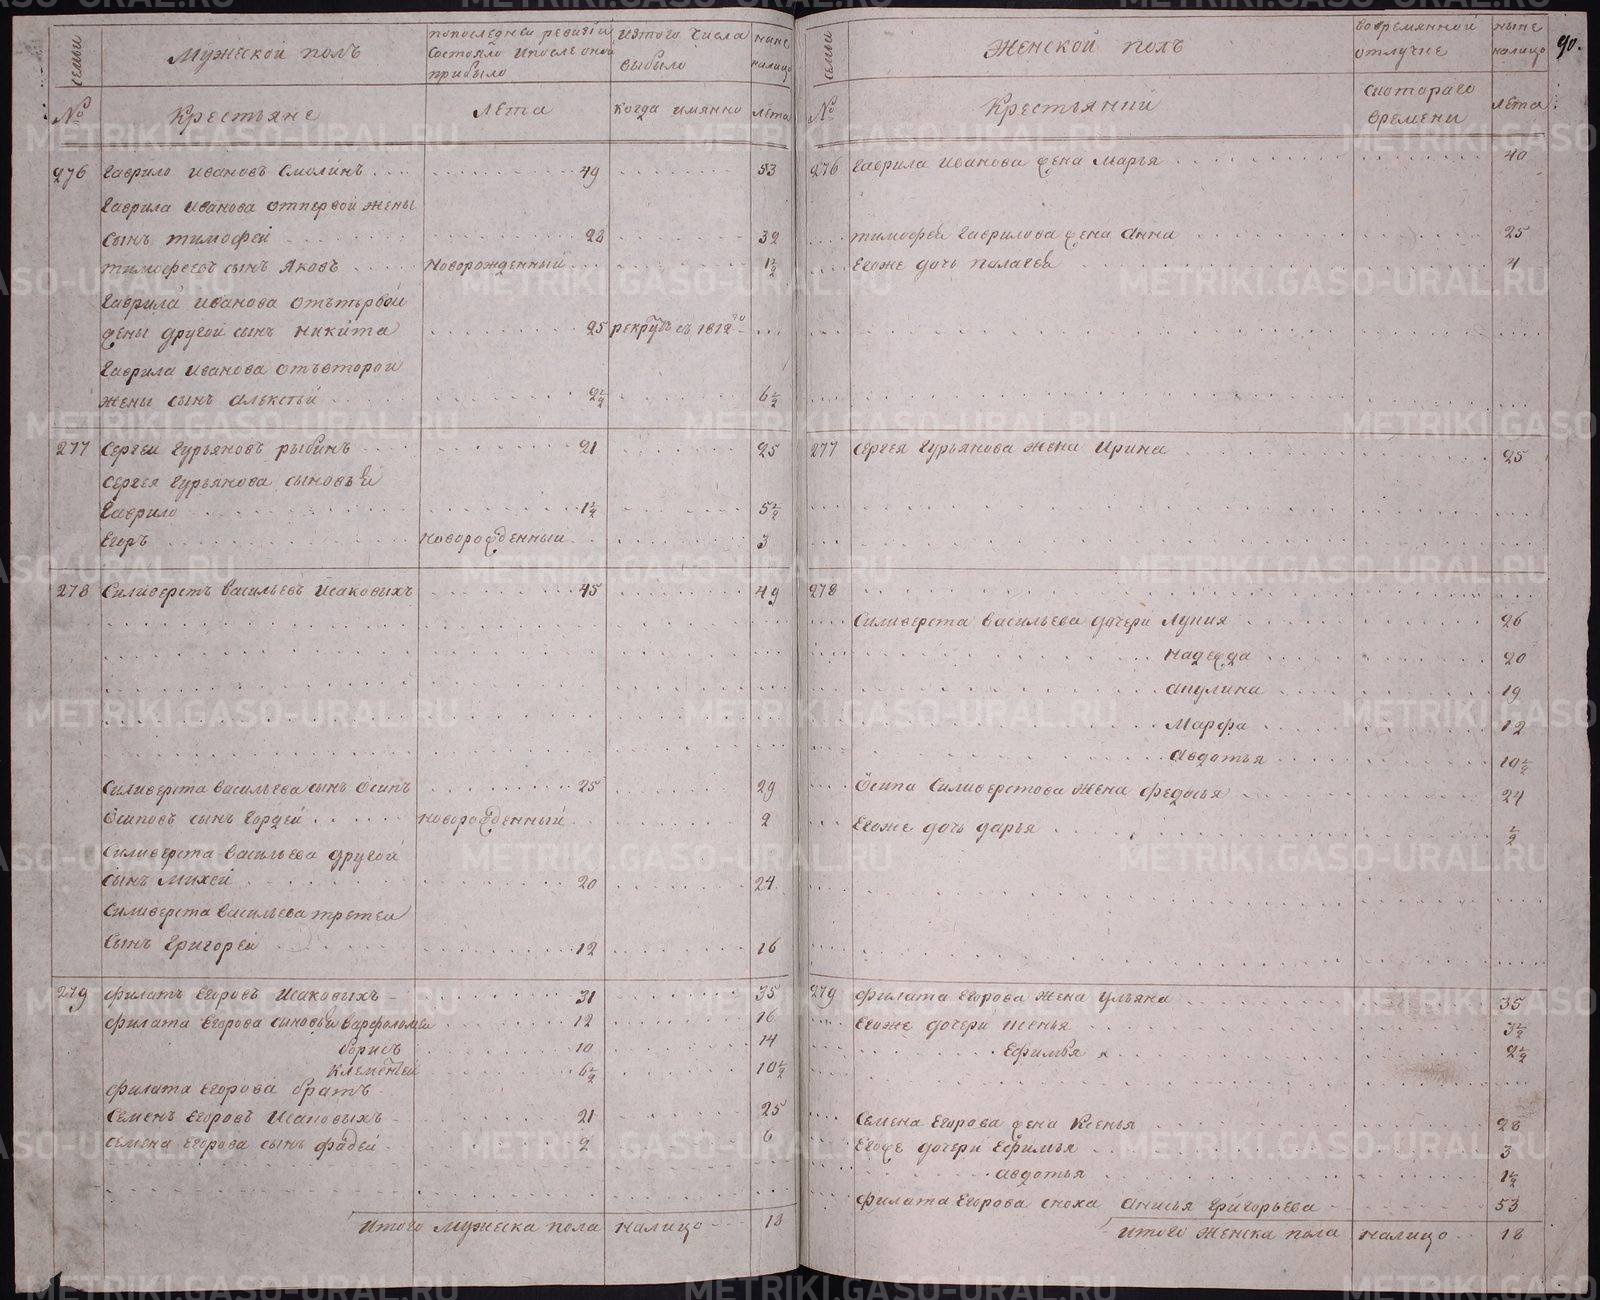 семьи
Мужеской полъ
попоследней ревизии
состояло и после оной
прибыло
изтого числа
выбыло
ныне
налицо
№
Крестьяне
Лета
когда имянно
лета
276 Гаврило Ивановъ Смолинъ 49 53
Гаврила Иванова отпервой жены
сынъ тимофей 28 32
тимофеевъ сынъ Яковъ Новорожденный 1½
Гаврила Иванова отъпервой
жены другой сынъ Никита 25 рекрутъ съ 1812го
Гаврила Иванова отъвторой
жены сынъ алексей 2½ 6½
277 Сергеи Гурьяновъ рыбинъ 21 25
Сергея Гурьянова сыновья
Гаврило 1½ 5½
Егоръ новорожденныи 3
278 Силиверстъ Васильевъ Исаковыхъ 45 49
Силиверста Васильева сынъ Осипъ 25 29
Осиповъ сынъ Гордей новорожденный 2
Силиверста Васильева другой
сынъ Михей 20 24
Силиверста Васильева третеи
Сынъ Григорей 12 16
279 филатъ Егоровъ Исаковыхъ 31 35
филата Егорова сыновья Варфоломей 12 16
борисъ 10 14
Клементей 6½ 10½
филата Егорова братъ
Семенъ Егоровъ Исаковыхъ 21 25
Семена Егорова сынъ фадей 2 6
Итого Мужеска пола налицо 18
семьи
Женской полъ
вовремянной
отлучке
ныне
налицо
90.
№
Крестьянки
скотораго
времени
лета
276 Гаврила Иванова жена Марья 40
тимофея Гаврилова жена Анна 25
Егоже дочь палагея 4
277 Сергея Гурьянова жена Ирина 25
278
Силиверста Васильева дочери Лукия 26
надежда 20
акулина 19
Марфа 12
авдотья 10½
Осипа Силиверстова жена федосья 24
Егоже дочь дарья ½
279 филата Егорова жена Ульяна 35
Егоже дочери 3½
Ефимья 2½
Семена Егорова жена Ксенья 28
Егоже дочери Ефимья 3
авдотья 1½
филата Егорова сноха Анисья Григорьева 53
Итого Женска пола налицо 18
METRIKI.GASO-URAL.RU